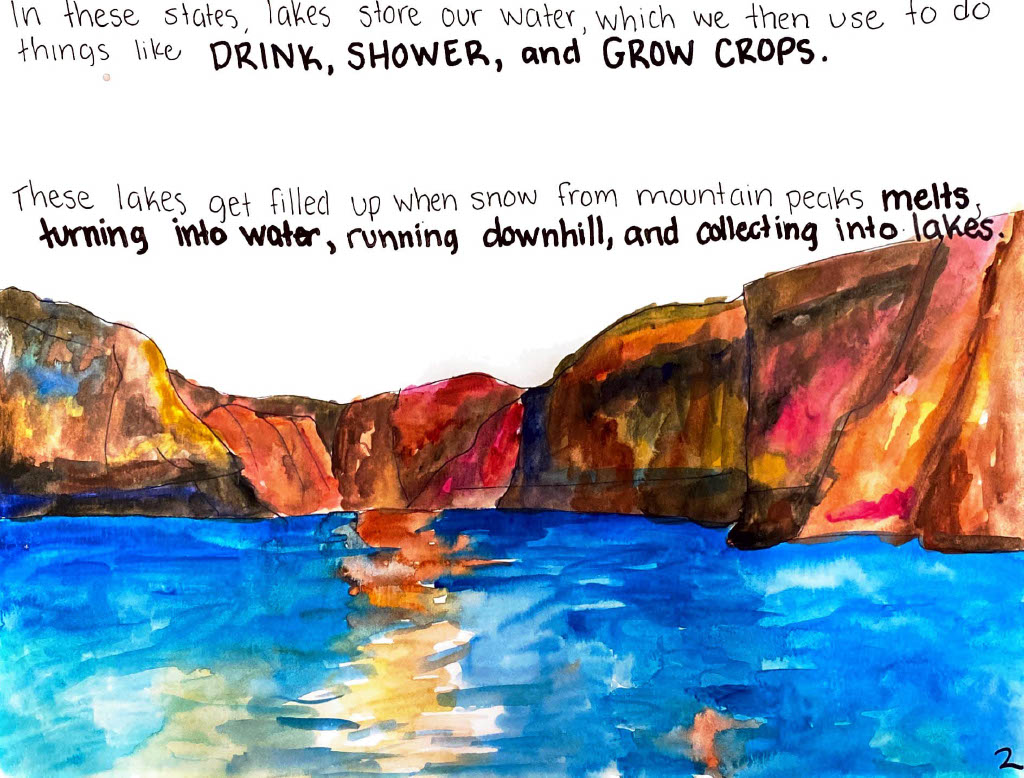 In these states, lakes store our water, which we then use to do
things like DRINK, SHOWER, and GROW CROPS.
These lakes get filled up when snow from mountain peaks melts,
turning into water, running downhill, and collecting into lakes.
2